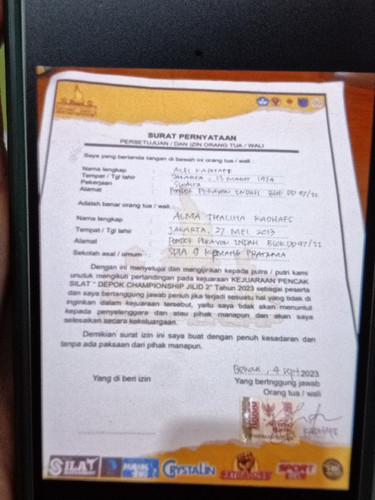 SURAT PERNYATAAN
PERSETUJUAN / DAN IZIN ORANG TUA / WALI
Saya yang bertanda tangan di bawah ini orang tua / wali
Nama lengkap
Tempat / Tgl lahir JAKARTA, 13 MARET 1974
Pekerjaan SWASTA
Alamat PONDOK PEKAYON INDAH BLOK DD 47/22
Adalah benar orang tua / wali
Nama lengkap ALMA THALITHA KADHAFE
Tempat / Tgl lahir JAKARTA, 27 MEI 2013
Alamat PONDOK PEKAYON INDAH BLOK DD 47/22
Sekolah asal / umum
Dengan ini menyetujui dan mengijinkan kepada putra / putri kami
untuk mengikuti pertandingan pada kejuaraan KEJUARAAN PENCAK
SILAT " DEPOK CHAMPIONSHIP JILID 2" Tahun 2023 sebagai peserta
dan saya bertanggung jawab penuh jika terjadi sesuatu hal yang tidak di
inginkan dalam kejuaraan tersebut, yaitu saya tidak akan menuntut
kepada penyelenggara dan atau pihak manapun dan akan saya
selesaikan secara kekeluargaan.
Demikian surat izin ini saya buat dengan penuh kesadaran dan
tanpa ada paksaan dari pihak manapun.
4 Sept 2023
Yang di beri izin
Yang bertnggung jawab
Orang tua / wali
SILAT CRYSTALIN SPORT